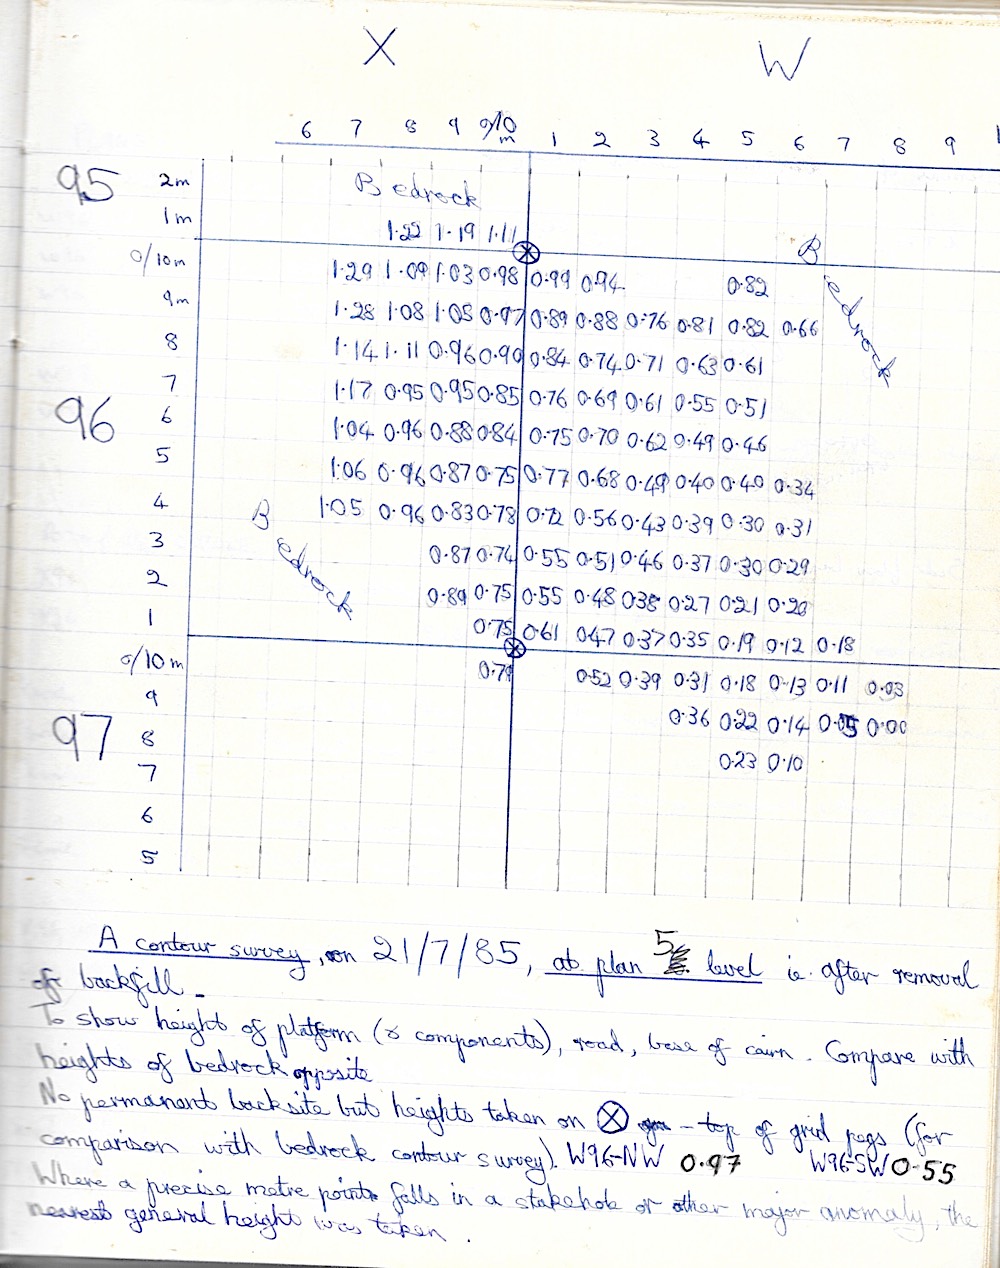 X W
6 7 8 9 0/10 m 1 2 3 4 5 6 7 8 9 1
95 2m Bedrock
1m 1.22 1.19 1.11
0/10m 1.29 1.09 1.03 0.98 0.99 0.94 0.82 Bedrock
9m 1.28 1.08 1.05 0.97 0.89 0.88 0.76 0.81 0.82 0.66
8 1.14 1.11 0.96 0.90 0.84 0.74 0.71 0.63 0.61
7 1.17 0.95 0.95 0.85 0.76 0.69 0.61 0.55 0.51
96 6 1.04 0.96 0.88 0.84 0.75 0.70 0.62 0.49 0.46
5 1.06 0.96 0.87 0.75 0.77 0.68 0.49 0.40 0.40 0.34
4 Bedrock 1.05 0.96 0.83 0.78 0.72 0.56 0.43 0.39 0.30 0.31
3 0.87 0.74 0.55 0.51 0.46 0.37 0.30 0.29
2 0.89 0.75 0.55 0.48 0.38 0.27 0.21 0.20
1 0.75 0.61 0.47 0.37 0.35 0.19 0.12 0.18
0/10 m 0.79 0.52 0.39 0.31 0.18 0.13 0.11 0.03
9 0.36 0.22 0.14 0.05 0.00
97 8 0.23 0.10
7
6
5
A contour survey, on 21/7/85, at plan 5 level ie. after removal
of backfill.
To show height of platform (& components), road, base of cairn. Compare with
heights of bedrock opposite
No permanent backsite but heights taken on ⊗ - top of grid pegs (for
comparison with bedrock contour survey). W96-NW 0.97 W96-SW 0.55
Where a precise metre point falls in a stakehole or other major anomaly, the
nearest general height was taken.